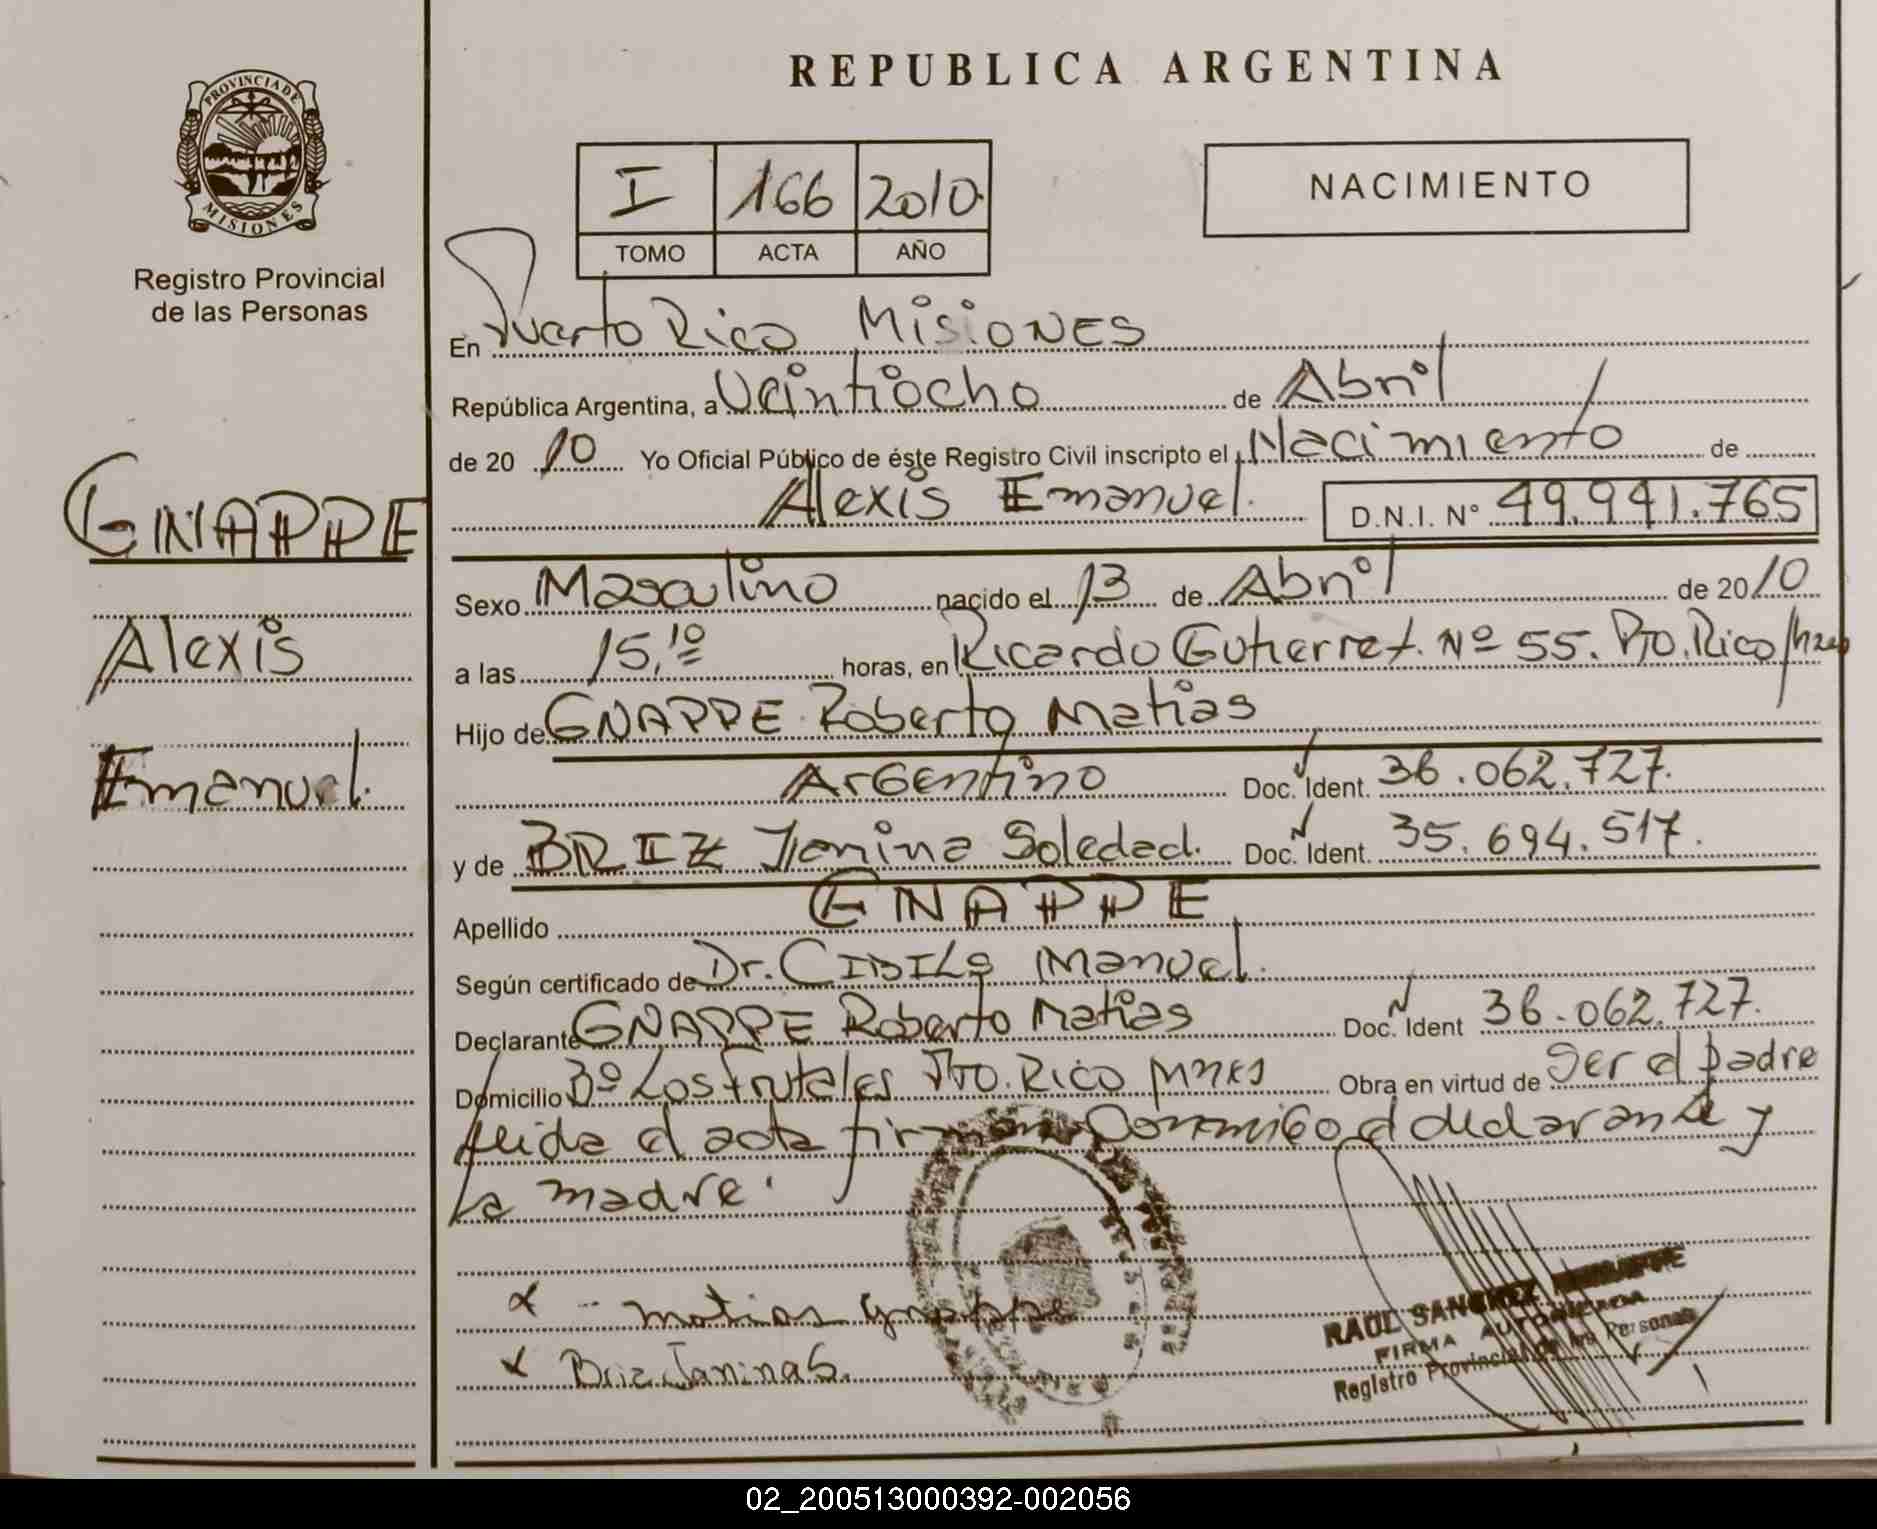 REPUBLICA ARGENTINA
PROVINCIA DE
MISIONES
Registro Provincial
de las Personas
I 166 2010
TOMO ACTA AÑO
NACIMIENTO
GNAPPE
Alexis
Emanuel.
En Puerto Rico MisiONES
República Argentina, a Veintiocho de Abril
de 2010 Yo Oficial Público de éste Registro Civil inscripto el Nacimiento de
Alexis Emanuel. D.N.I. N° 49.941.765
Sexo Masculino nacido el 13 de Abril de 2010
a las 15,10 horas, en Ricardo Gutierrez. Nº 55. Pto. Rico
Hijo de GNAPPE Roberto Matias
Argentino Doc. Ident. 36.062.727.
y de BRIZ Janina Soledad. Doc. Ident. 35.694.517.
Apellido GNAPPE
Según certificado de Dr. CIBILS Manuel.
Declarante GNAPPE Roberto Matias Doc. Ident 36.062.727.
Domicilio Bº Los Frutales Pto. Rico Mnes Obra en virtud de Ser el padre
leida el acta firman Conmigo el declarante y
La madre.
matias gnappe
Briz Janina S.
RAUL SANCHEZ
FIRMA AUTORIZADA
Registro Provincial de las Personas
02_200513000392-002056